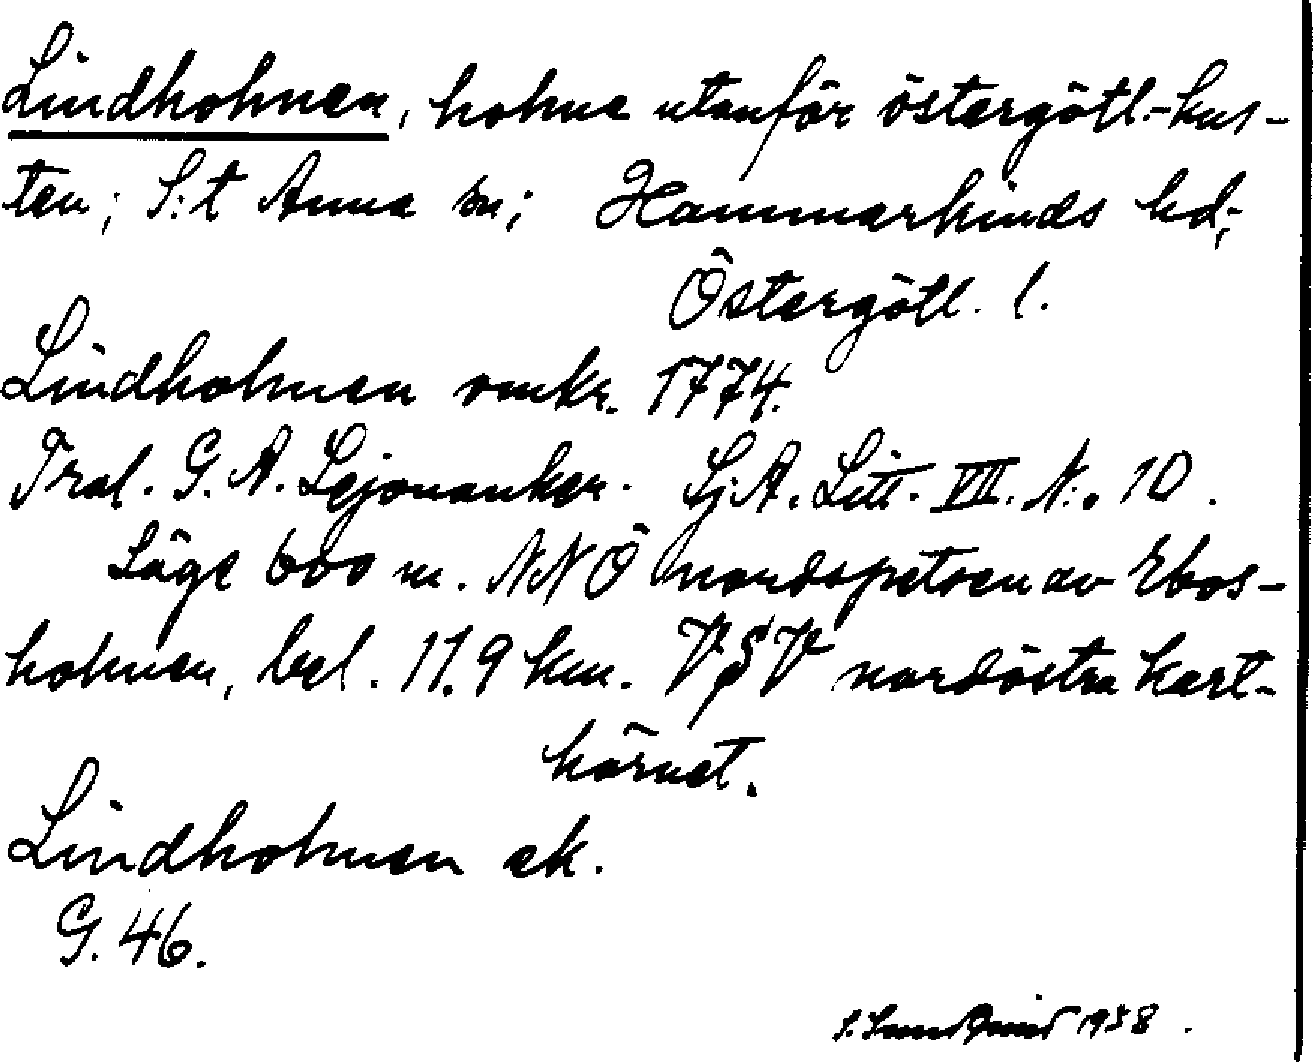 Lindholmen, holme utanför östergötl.-kus-
ten; S:t Anna sn; Hammarkinds hd;
Östergötl. l.
Lindholmen omkr. 1774.
Tral. G. A. Lejonanker. Sj.A. Litt. VII. N:o 10.
Läge 600 m. NNÖ nordspetsen av Ebos-
holmen, bel. 11.9 km. VSV nordöstra kart-
hörnet.
Lindholmen ek.
G. 46.
1958.